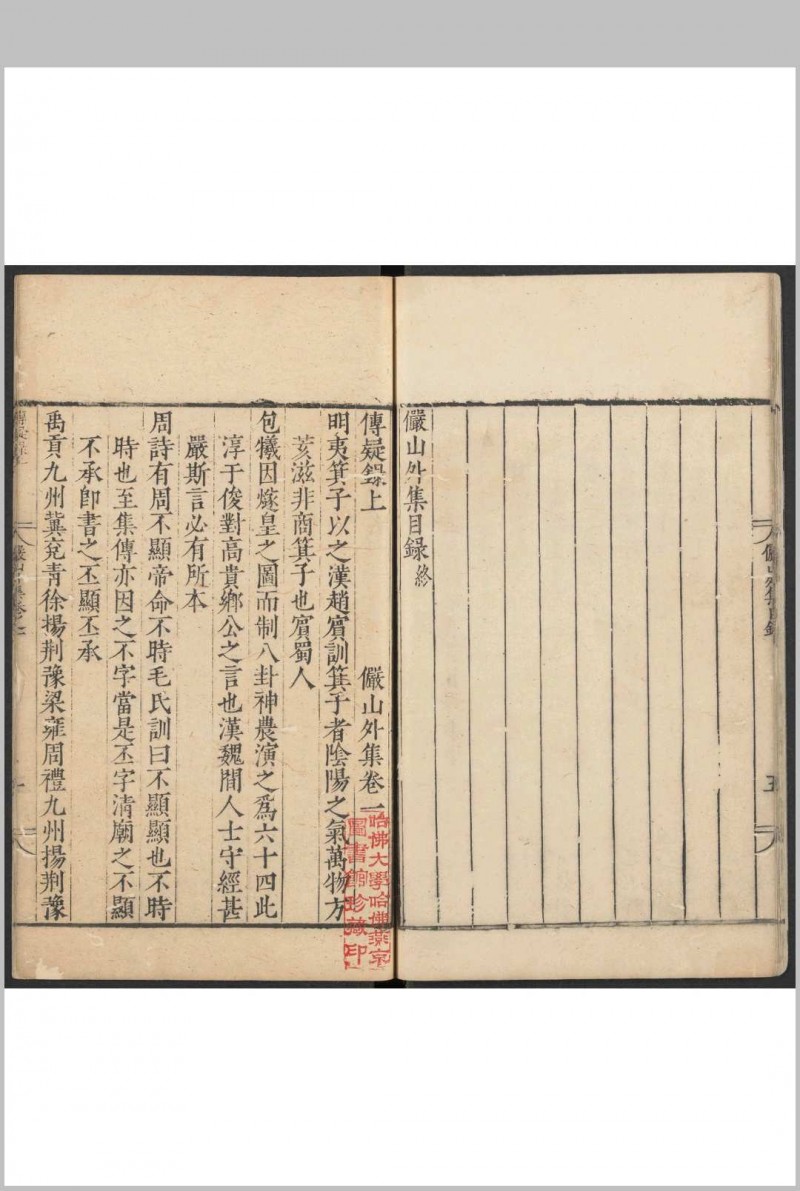 儼山外集目錄
五
儼山外集目錄終
傳疑錄上　儼山外集卷一
明夷箕子以之漢趙賓訓箕子者陰陽之氣萬物方
荄滋非商箕子也賓蜀人
包犧因燧皇之圖而制八卦神農演之為六十四此
淳于俊對高貴鄉公之言也漢魏間人士守經甚
嚴斯言必有所本
周詩有周不顯帝命不時毛氏訓曰不顯顯也不時
時也至集傳亦因之不字當是丕字清廟之不顯
不承即書之丕顯丕承
禹貢九州冀兗青徐揚荆豫梁雍周禮九州揚荆豫
哈佛大學哈佛燕京
圖書館珍藏印